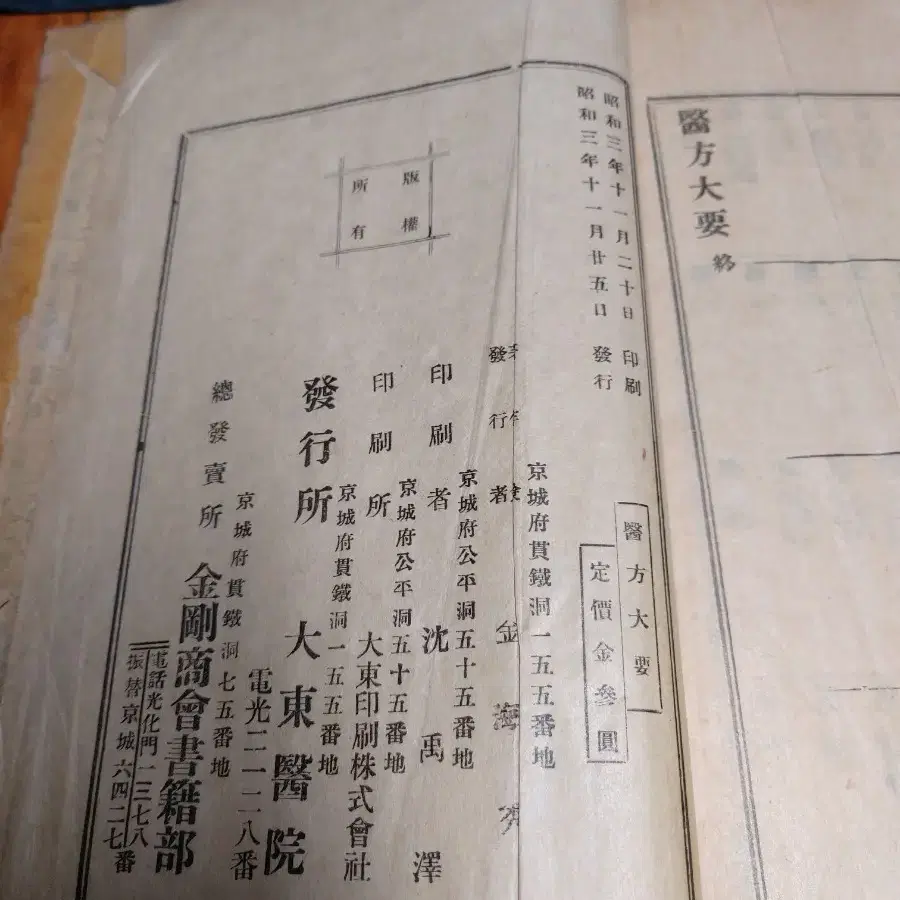 醫方大要 終
昭和三年十一月二十日 印刷
昭和三年十一月廿五日 發行
醫方大要
定價金參圓
版權
所有
京城府貫鐵洞一五五番地
發行者 金海
京城府公平洞五十五番地
印刷者 沈禹澤
京城府公平洞五十五番地
印刷所 大東印刷株式會社
京城府貫鐵洞一五五番地
發行所 大東醫院
電光二一二八番
京城府貫鐵洞七五番地
總發賣所 金剛商會書籍部
電話光化門一三七八
振替京城六四二七番